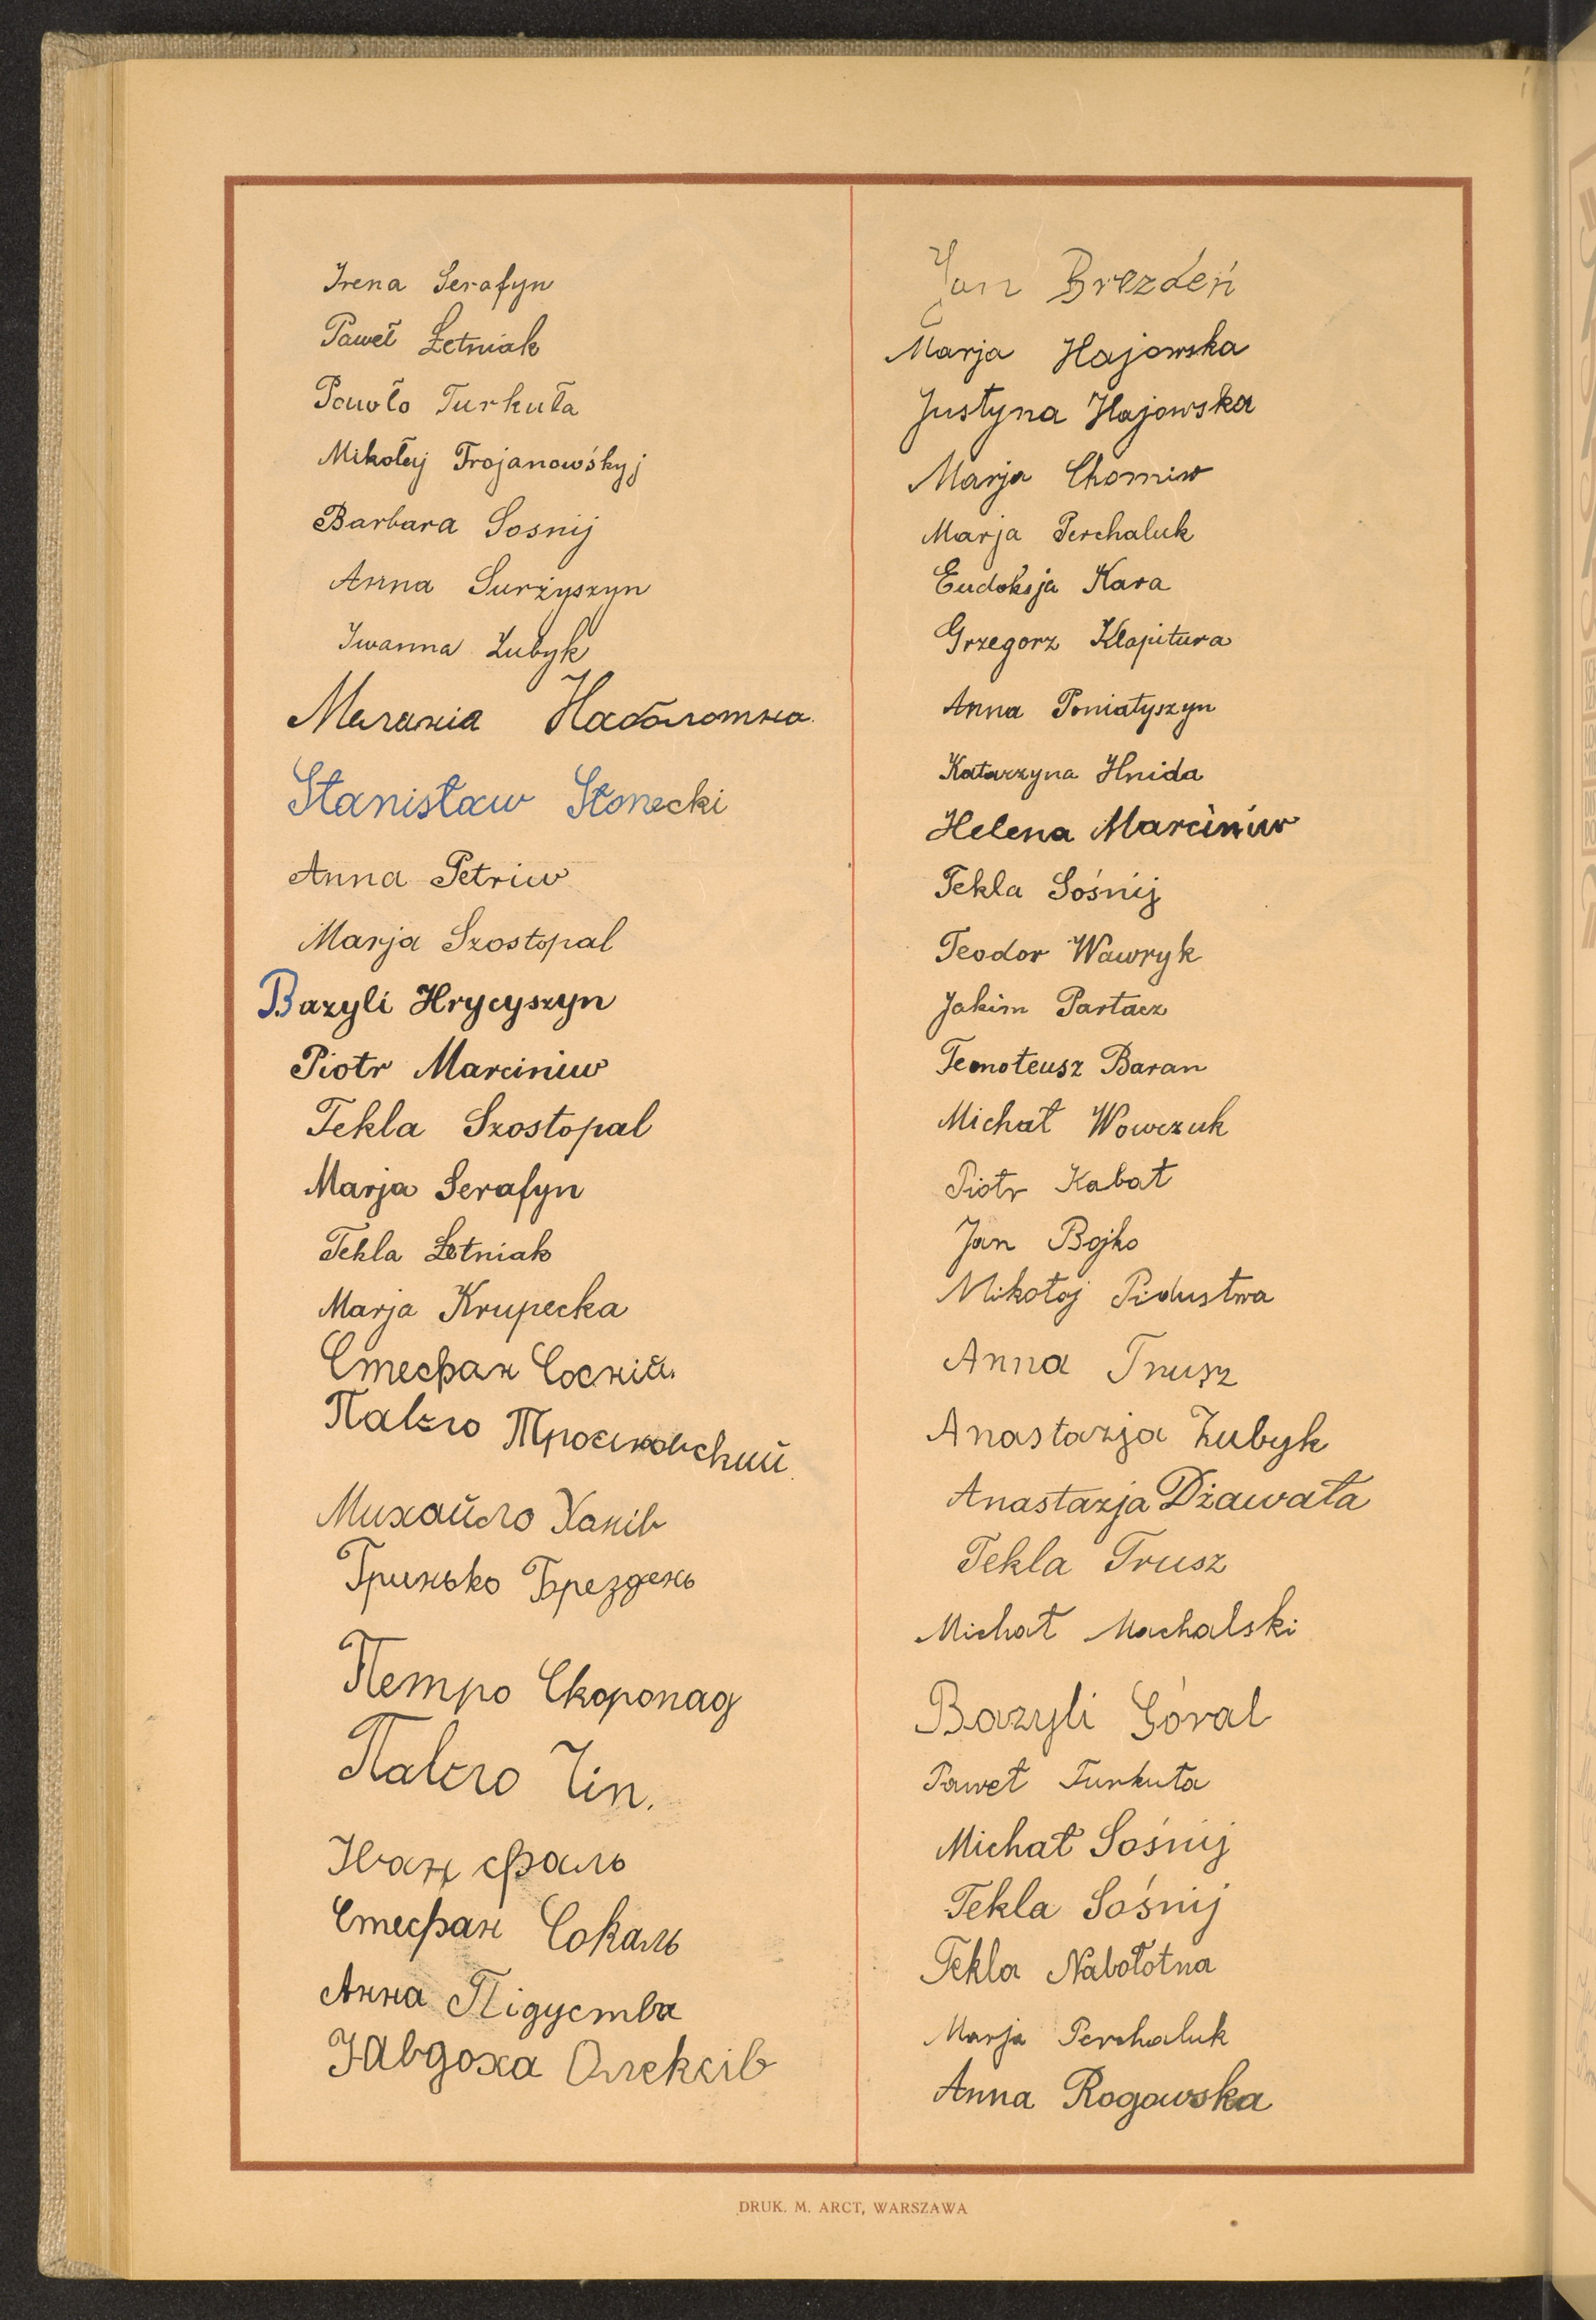 Irena Serafyn
Paweł Łetniak
Pawło Turkuła
Mikołaj Trojanowśkyj
Barbara Sosnij
Anna Surżyszyn
Iwanna Zubyk
Меланія Наболотна.
Stanisław Słonecki
Anna Petriw
Marja Szostopal
Bazyli Hrycyszyn
Piotr Marciniw
Tekla Szostopal
Marja Serafyn
Tekla Łetniak
Marja Krupecka
Стефан Сосній.
Павло Трояновский.
Михайло Ханів
Гринько Брездень
Петро Скоропад
Павло Чіп.
Іван фаль
Стефан Сокаль
Анна Підуства
Явдоха Олексів
Jan Brezdeń
Marja Hajowska
Justyna Hajowska
Marja Chomiw
Marja Perchaluk
Eudoksja Kara
Grzegorz Klapitura
Anna Poniatyszyn
Katarzyna Hnida
Helena Marciniw
Tekla Sośnij
Teodor Wawryk
Jakim Partacz
Temoteusz Baran
Michał Wowczuk
Piotr Kabat
Jan Bojko
Mikołaj Pidustwa
Anna Trusz
Anastazja Zubyk
Anastazja Dżawała
Tekla Trusz
Michał Machalski
Bazyli Góral
Paweł Turkuła
Michał Sośnij
Tekla Sośnij
Tekla Nabołotna
Marja Perchaluk
Anna Rogowska
DRUK. M. ARCT, WARSZAWA